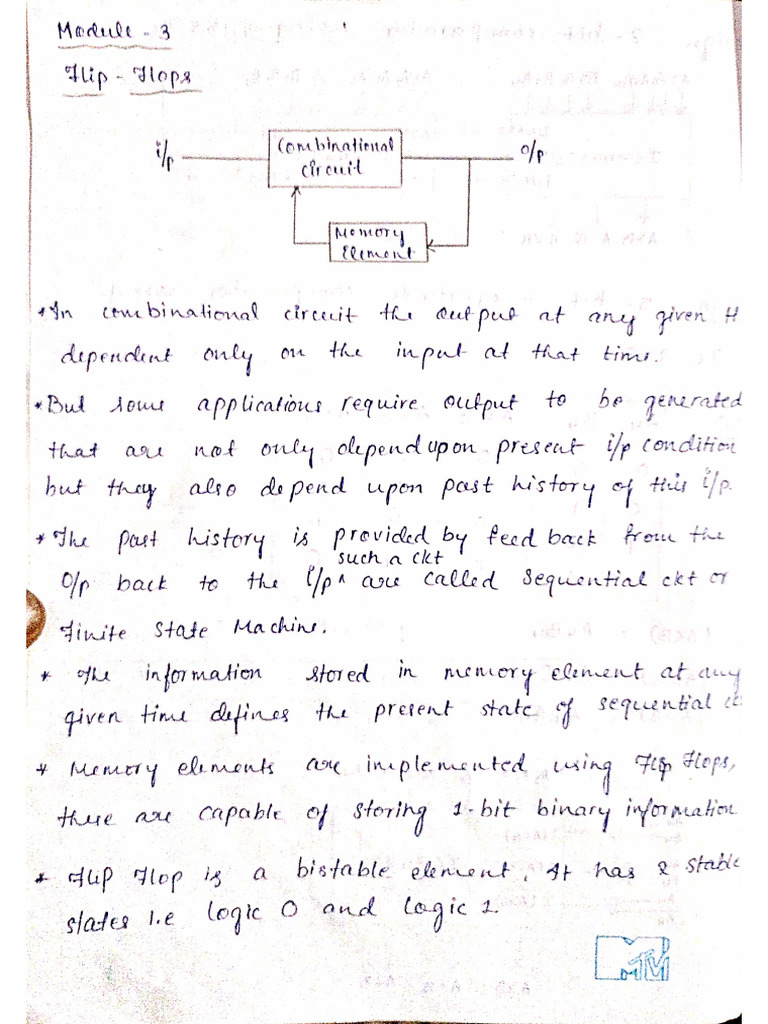 Module - 3
Flip - Flops
i/p
Combinational
circuit
o/p
Memory
Element
*In combinational circuit the output at any given
dependent only on the input at that time.
*But some applications require output to be generated
that are not only depend upon present i/p condition
but they also depend upon past history of this i/p.
*The past history is provided by feed back from the
such a ckt
O/p back to the i/p ^ are called sequential ckt or
Finite State Machine.
* The information stored in memory element at any
given time defines the present state of sequential
* Memory elements are implemented using Flip Flops,
these are capable of storing 1-bit binary information
* Flip Flop is a bistable element. It has 2 stable
states i.e logic 0 and logic 1.
MTV